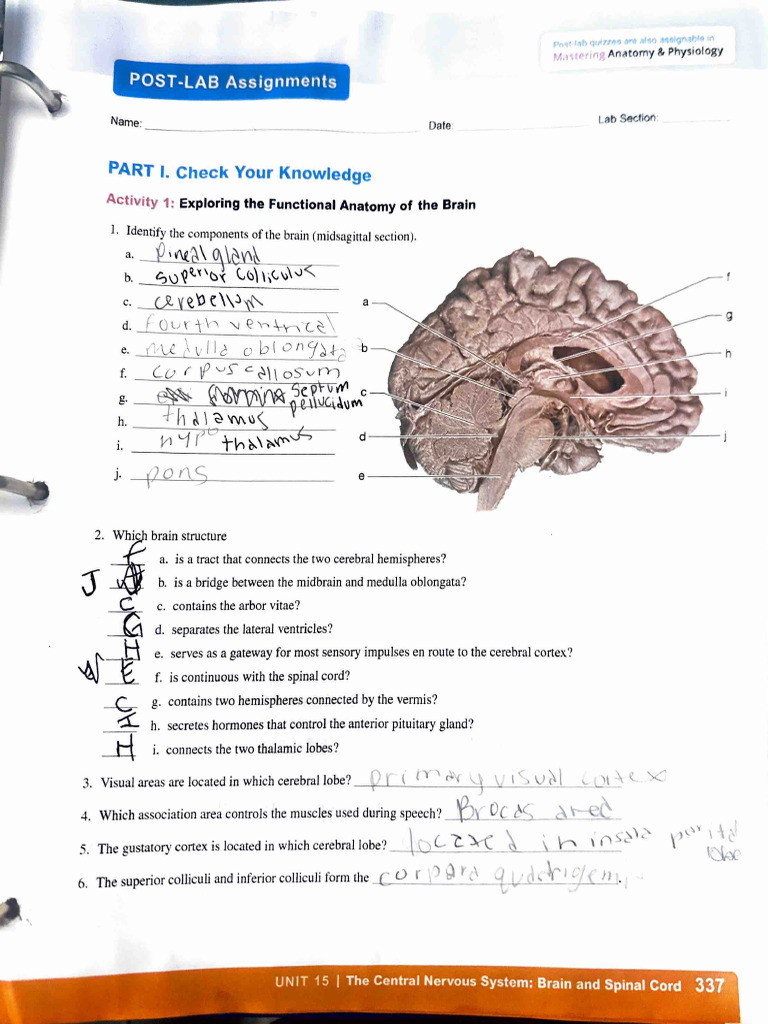 Post-lab quizzes are also assignable in
Mastering Anatomy & Physiology
POST-LAB Assignments
Name: Date: Lab Section:
PART I. Check Your Knowledge
Activity 1: Exploring the Functional Anatomy of the Brain
1. Identify the components of the brain (midsagittal section).
a. Pineal gland
b. superior colliculus
c. cerebellum
d. fourth ventrical
e. medulla oblongata
f. corpus callosum
g. septum pellucidum
h. thalamus
i. hypothalamus
j. pons
a
b
c
d
e
f
g
h
i
j
2. Which brain structure
f a. is a tract that connects the two cerebral hemispheres?
J b. is a bridge between the midbrain and medulla oblongata?
C c. contains the arbor vitae?
G d. separates the lateral ventricles?
H e. serves as a gateway for most sensory impulses en route to the cerebral cortex?
E f. is continuous with the spinal cord?
C g. contains two hemispheres connected by the vermis?
I h. secretes hormones that control the anterior pituitary gland?
H i. connects the two thalamic lobes?
3. Visual areas are located in which cerebral lobe? primary visual cortex
4. Which association area controls the muscles used during speech? Brocas area
5. The gustatory cortex is located in which cerebral lobe? located in insala parital lobe
6. The superior colliculi and inferior colliculi form the corpara quadrigem.
UNIT 15 | The Central Nervous System: Brain and Spinal Cord 337